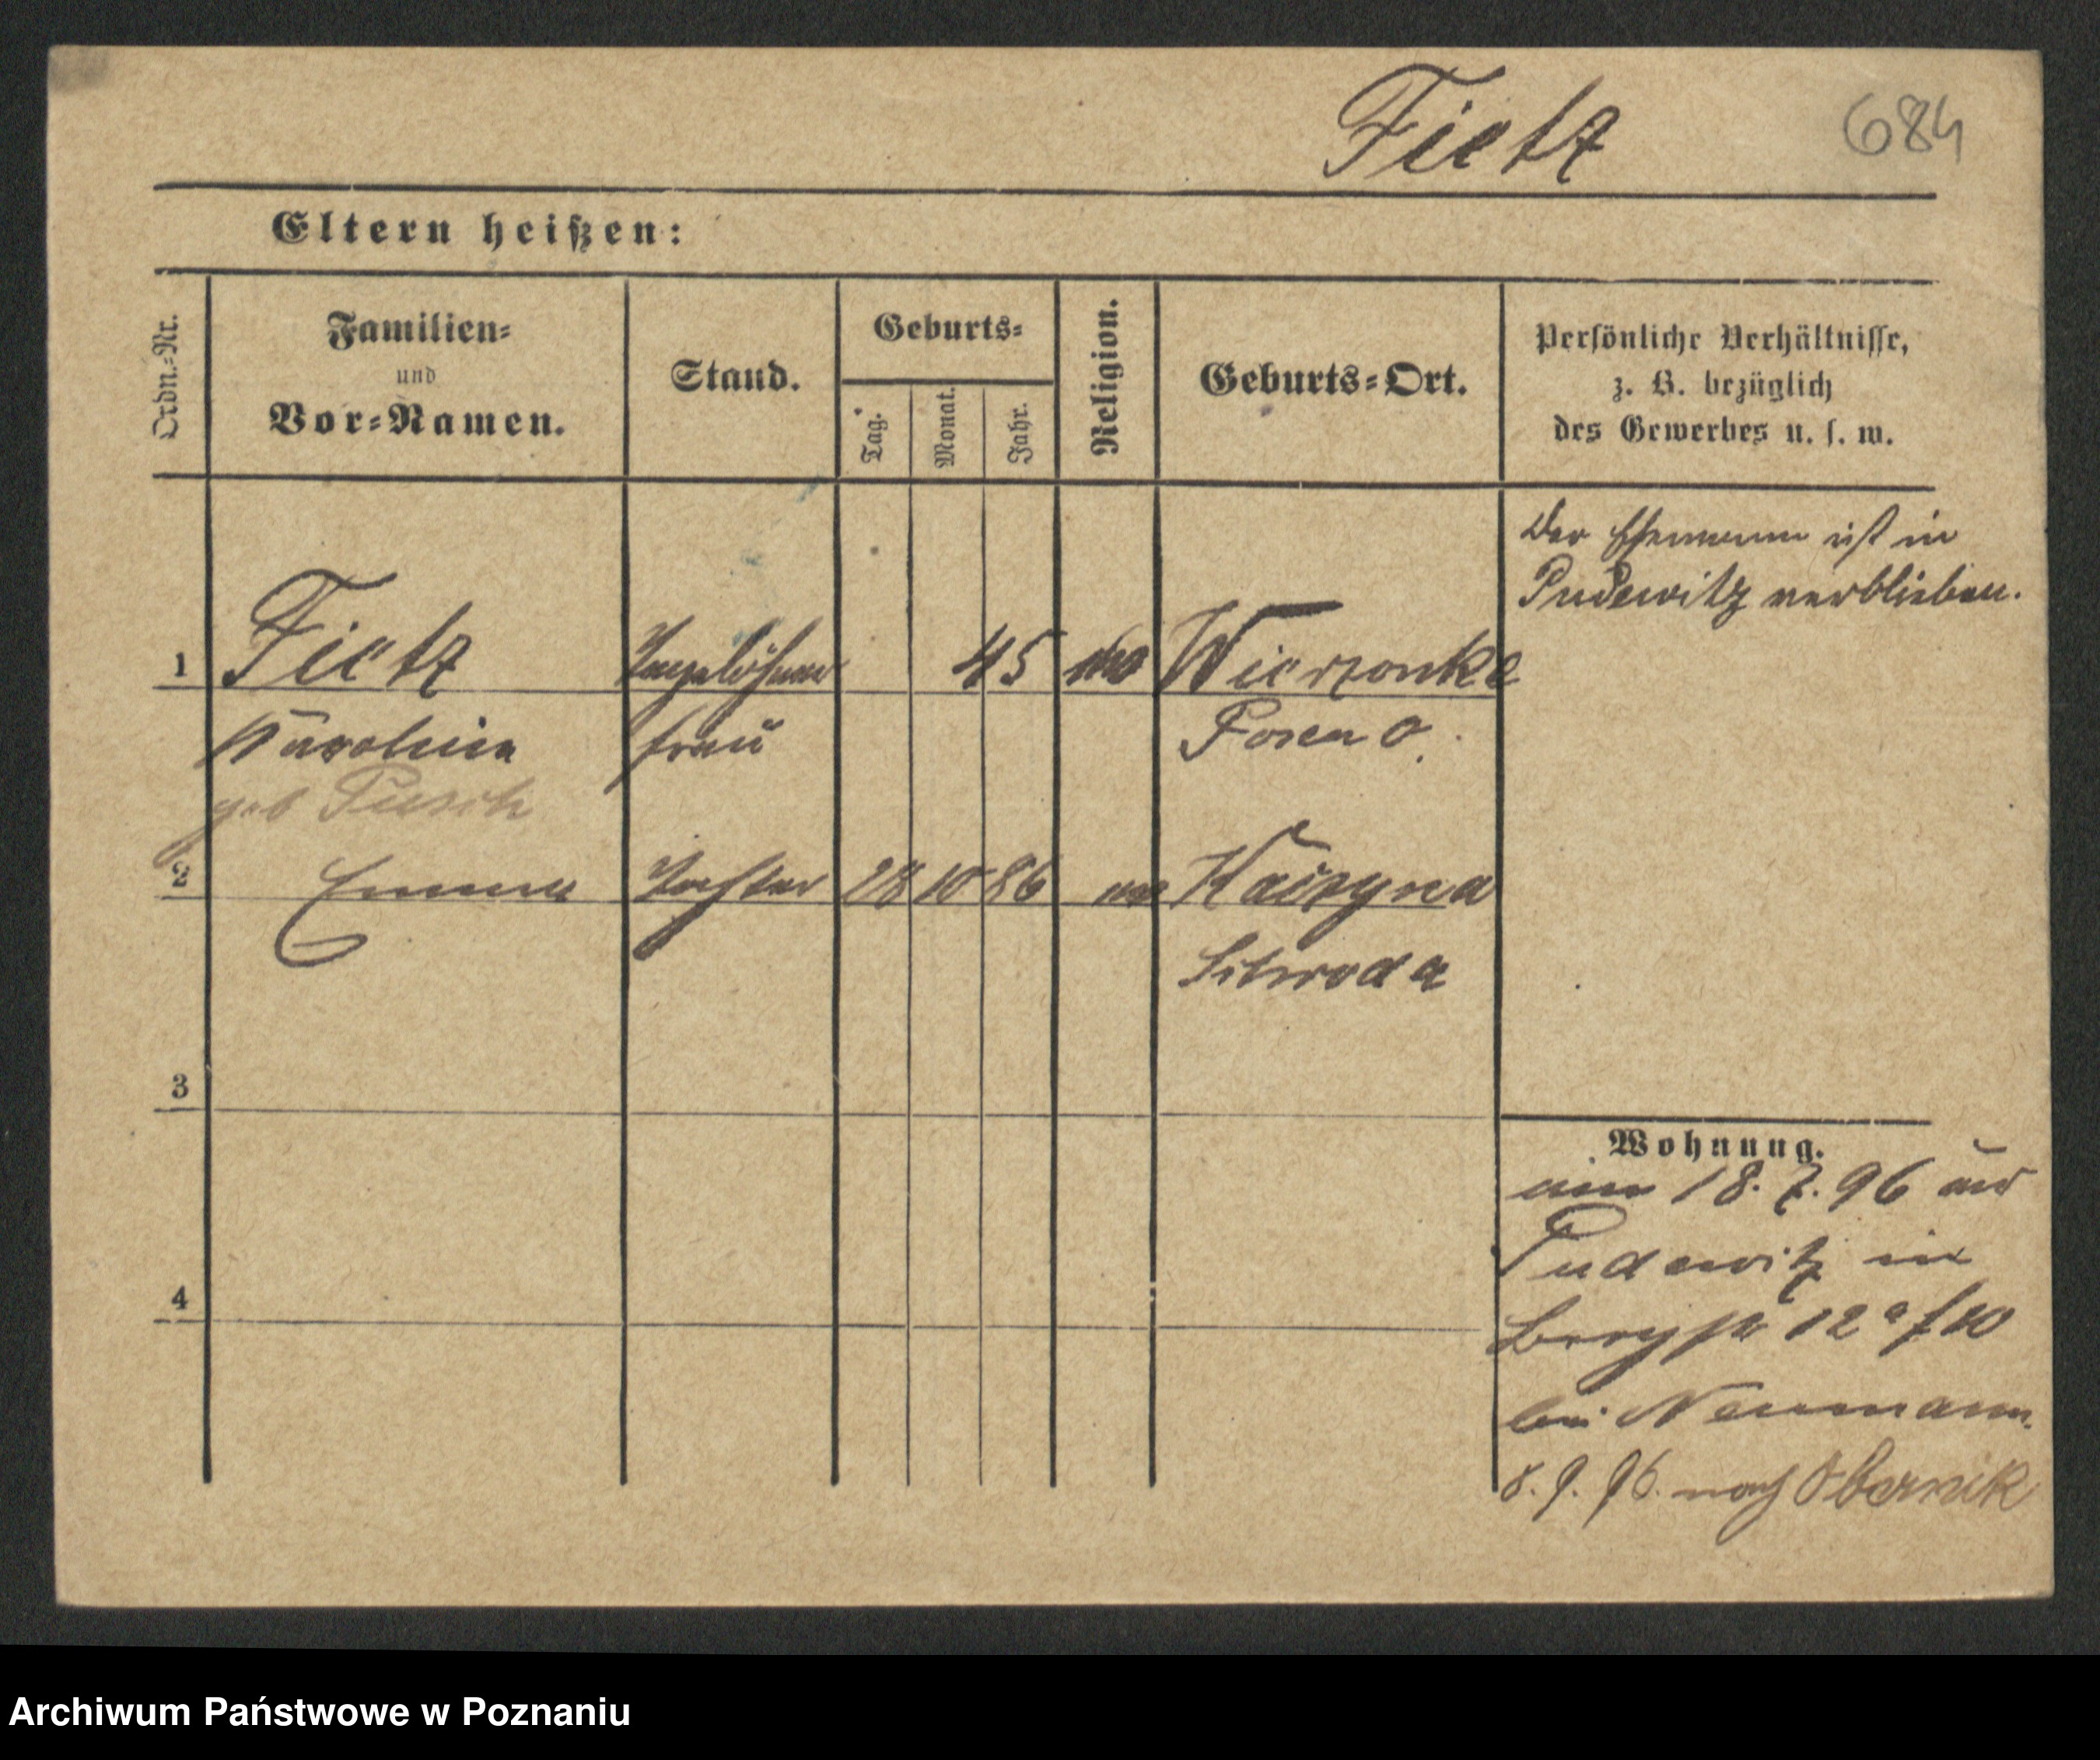 Fietz
684
Eltern heißen:
Ordn.-Nr.
Familien-
und
Vor-Namen.
Stand.
Geburts-
Tag.
Monat.
Jahr.
Religion.
Geburts-Ort.
Persönliche Verhältnisse,
z. B. bezüglich
des Gewerbes u. s. w.
Der Ehemann ist in
Pudewitz verblieben.
1 Fietz Tagelöhner 45 Wierzonka
Karoline frau Posen O.
geb Pusch
2 Emma Tochter 28 10 86 ev
Schroda
3
4
Wohnung.
18. 7. 96 aus
Pudewitz in
Bergstr 12a
bei Neumann.
8. 9. 96. nach Obornik
Archiwum Państwowe w Poznaniu